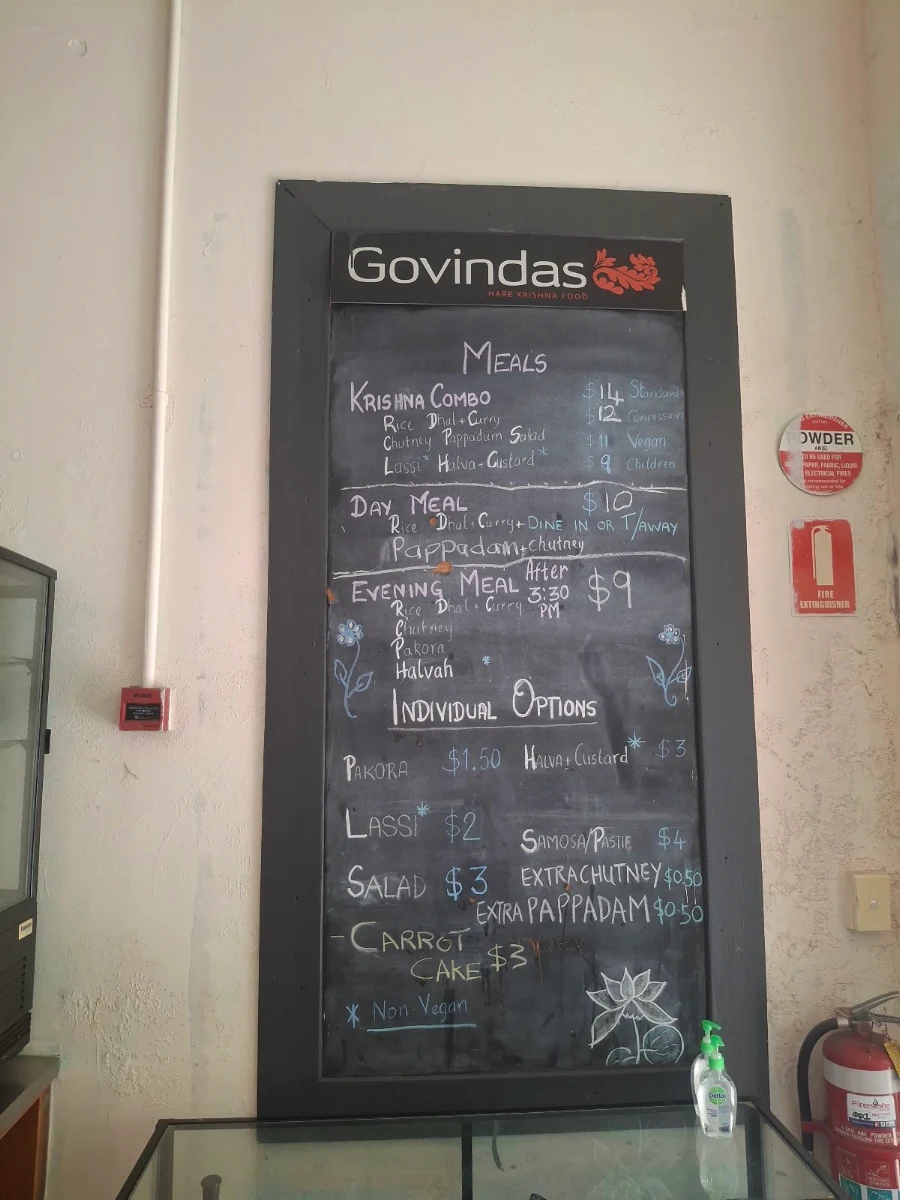 Govindas
HARE KRISHNA FOOD
MEALS
KRISHNA COMBO $14 Standard
Rice Dhal+Curry $12 Concession
Chutney Pappadum Salad $11 Vegan
Lassi* Halva+Custard* $9 Children
DAY MEAL $10
Rice Dhal+Curry+ DINE IN OR T/AWAY
Pappadam+chutney
EVENING MEAL After 3:30 PM $9
Rice Dhal+Curry
Chutney
Pakora
Halvah *
INDIVIDUAL OPTIONS
PAKORA $1.50 HALVA+Custard* $3
LASSI* $2 SAMOSA/PASTIE $4
SALAD $3 EXTRA CHUTNEY $0.50
EXTRA PAPPADAM $0.50
-CARROT
CAKE $3
* Non-Vegan
POWDER
AB(E)
TO BE USED FOR
PAPER, FABRIC, LIQUID
ELECTRICAL FIRES
FIRE
EXTINGUISHER
Dettol
FireSafe